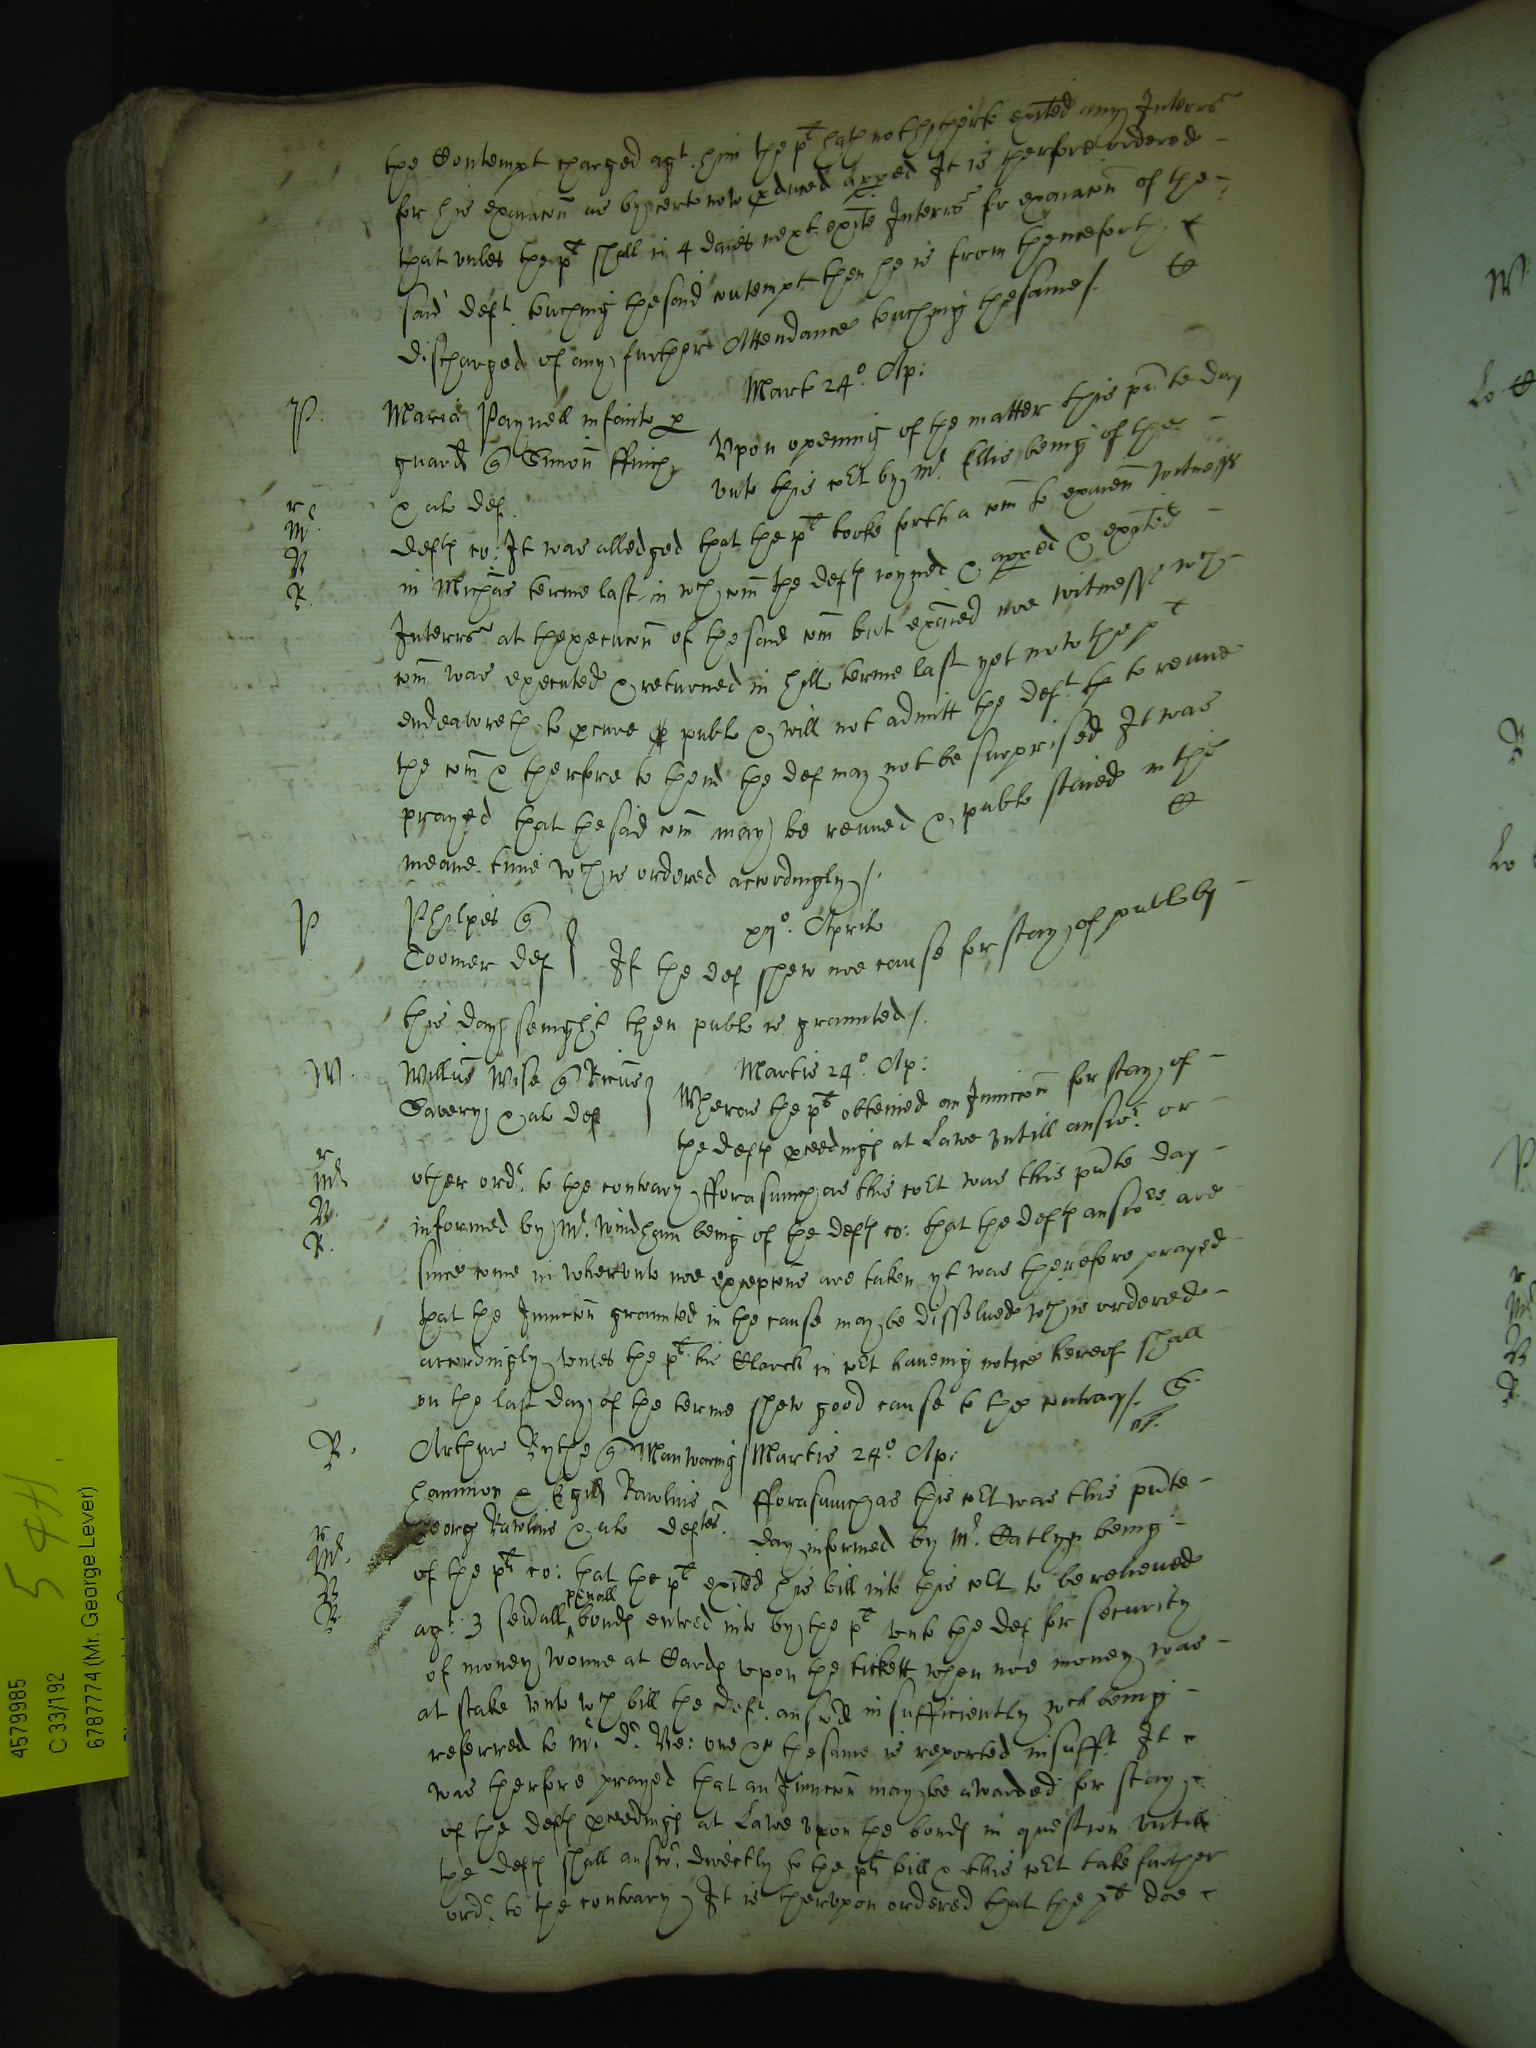 the Contempt charged agt. him the plt hath not hitherto exited any Interrs
for his exaiacon as by certe now pduced apped It is therfore ordered
that vnles the plt shall in 4 daies next exite Interrs for exaiacon of the
said deft. touching the said contempt then he is from thenceforth
discharged of any further Attendance touching the same /.
Mart 24o. Ap:
P. Maria Paynell infante p
guard q Simon ffinch
& al def.
Vpon opening of the matter this pnte day
vnto this cort by Mr. Ellis being of the
r
Mr.
N
R.
deftes co: It was alledged that the plt tooke forth a com to examen witness
in Michas terme last in wch com the deftes ioyned & apped & exited
Interrs at thexecucon of the said com but exaied noe witnesse wch
com was executed & returned in Hill terme last yet now the plt
endeavoreth to pcure publ & will not admitt the deft. to renue
the com & therfore to thend the def may not be surprised It was
prayed that the said com may be renued & publ staied in the
meane time wch is ordered accordingly /.
P Phelpes q
Toomer def
xijo. Aprilis
If the def shew noe cause for stay of publ by
this day sennight then publ is graunted /.
W. Willus Wise q Ricus
Savery & al def
Martis 24o. Ap:
Wheras the plt obteined an Iniuccon for stay of
the deftes pceedings at Lawe vntill answr. or
r
Mr
N.
R.
other ordr. to the contrary fforasmuch as this cort was this pnte day
informed by Mr. Windham being of the deftes co: that the deftes answers are
since come in whervnto noe excepcons are taken yt was therefore prayed
that the Iniuccon graunted in the cause may be dissolued wch is ordered
accordingly vnles the plt his Clarck in cort haueing notice hereof shall
on the last day of the terme shew good cause to the contrary /.
R. Arthur Rythe q Manwaring
Hammon & Egid Rawlins
George Rawlins & al deftes.
Martis 24o. Ap:
fforasmuch as this cort was this pnte
day informed by Mr. Catlyn being
r
Mr.
N
R.
of the pltes co: that the plt exited his bill into this cort to be releiued
agt. 3 seuall penall bondes entred into by the plt vnto the def for security
of money wonne at Cardes vpon the tickett when noe money was
at stake vnto wch bill the deft. answd insufficiently wch being
referred to Mr. Dr. the same is reported insufft. It
was therfore prayed that an Iniuccon may be awarded for stay
of the deftes pceedings at Lawe vpon the bondes in question vntill
the deftes shall answr. directly to the pltes bill & this cort take further
ordr. to the contrary It is thervpon ordered that the plt doe
4579985
C 33/192
6787774 (Mr. George Lever)